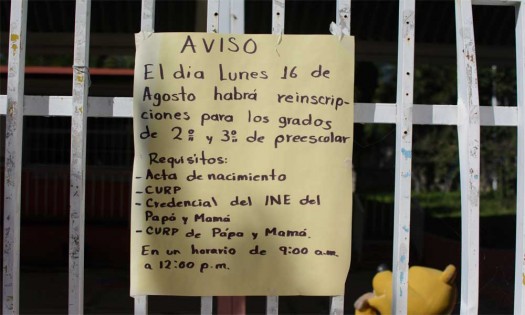 AVISO
El día Lunes 16 de
Agosto habrá reinscrip-
ciones para los grados
de 2º y 3º de preescolar
Requisitos:
- Acta de nacimiento
- CURP
- Credencial del INE del
Papá y Mamá
- CURP de Pápa y Mamá.
En un horario de 9:00 a.m.
a 12:00 p.m.